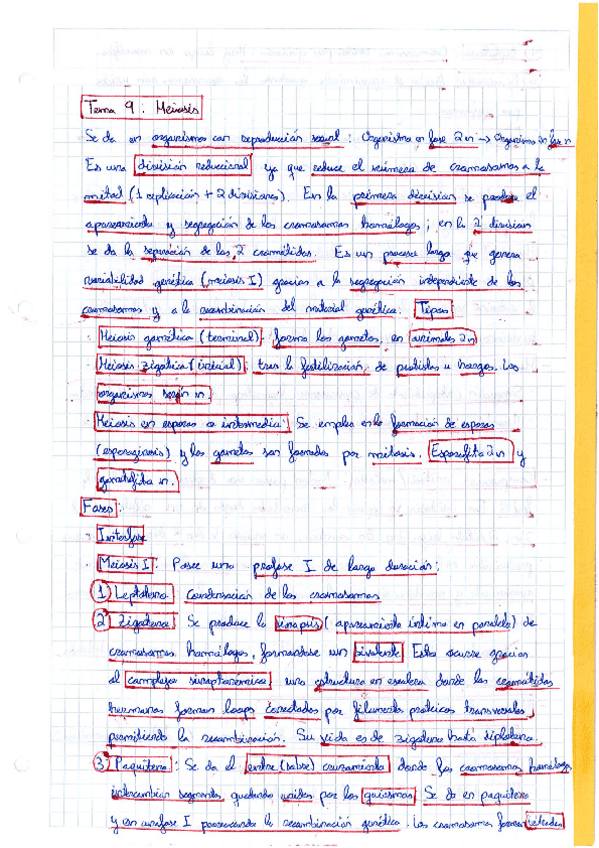 Tema 9: Meiosis
Se da en organismos con reproducción sexual: Organismo en fase 2n → Organismo en fase n
Es una división reduccional ya que reduce el número de cromosomas a la
mitad (1 replicación + 2 divisiones). En la primera división se produce el
apareamiento y segregación de los cromosomas homólogos; en la 2ª división
se da la separación de las 2 cromátidas. Es un proceso largo que genera
variabilidad genética (meiosis I) gracias a la segregación independiente de los
cromosomas y a la recombinación del material genético. Tipos
· Meiosis gamética (terminal): forma los gametos, en animales 2n
· Meiosis zigótica (inicial): tras la fertilización, de protistas u hongos. Los
organismos serán n.
· Meiosis en esporas o intermedia: Se emplea en la formación de esporas
(esporogénesis) y los gametos son formados por mitosis. Esporofito 2n y
gametofito n.
Fases:
· Interfase
· Meiosis I: Posee una profase I de larga duración:
1) Leptoteno: Condensación de los cromosomas
2) Zigoteno: Se produce la sinapsis (apareamiento íntimo en paralelo) de
cromosomas homólogos, formándose un bivalente. Esto ocurre gracias
al complejo sinaptonémico, una estructura en escalera donde las cromátidas
hermanas forman loops conectados por filamentos proteicos transversales,
permitiendo la recombinación. Su vida es de zigoteno hasta diploteno.
3) Paquiteno: Se da el entre (sobre) cruzamiento donde los cromosomas homólogos
intercambian segmentos, quedando unidos por los quiasmas. Se da en paquiteno
y en anafase I provocando la recombinación genética. Los cromosomas forman tétradas